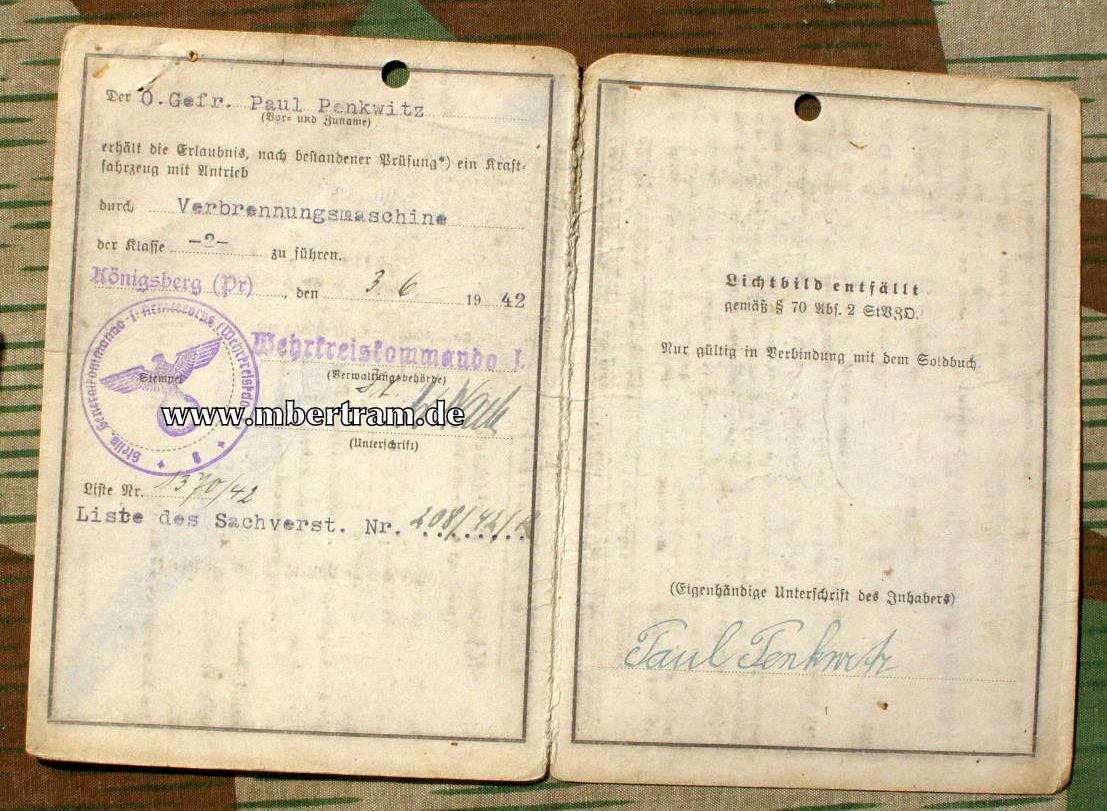 Der O.Gefr. Paul Pankwitz
(Vor= und Zuname)
erhält die Erlaubnis, nach bestandener Prüfung*) ein Kraft=
fahrzeug mit Antrieb
durch Verbrennungsmaschine
der Klasse -2- zu führen.
Königsberg (Pr), den 3 6 1942
Wehrkreiskommando I.
(Verwaltungsbehörde)
Stempel
Stellv. Generalkommando I. Armeekorps
www.mbertram.de
(Unterschrift)
Liste Nr. 1370/42
Liste des Sachverst. Nr. 208/42/
Lichtbild entfällt
gemäß § 70 Abs. 2 StVZO.
Nur gültig in Verbindung mit dem Soldbuch
(Eigenhändige Unterschrift des Inhabers)
Paul Penkwitz